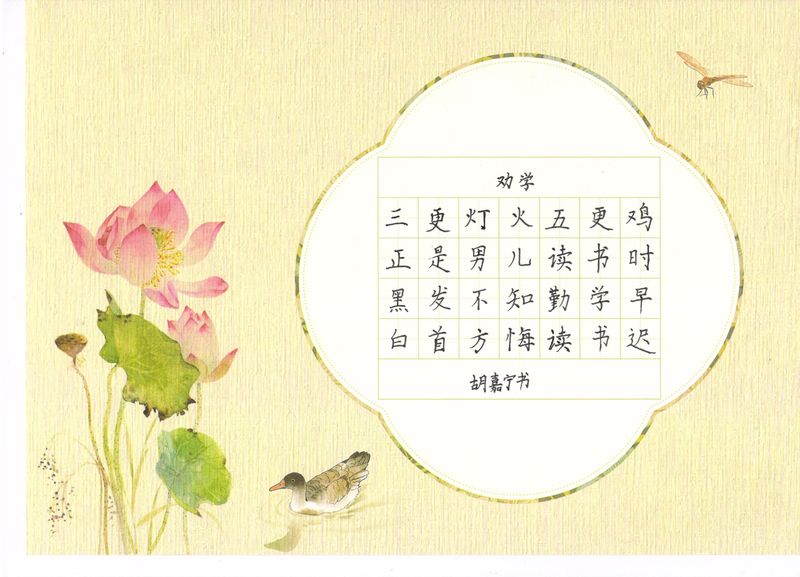 劝学
三更灯火五更鸡
正是男儿读书时
黑发不知勤学早
白首方悔读书迟
胡嘉宁书